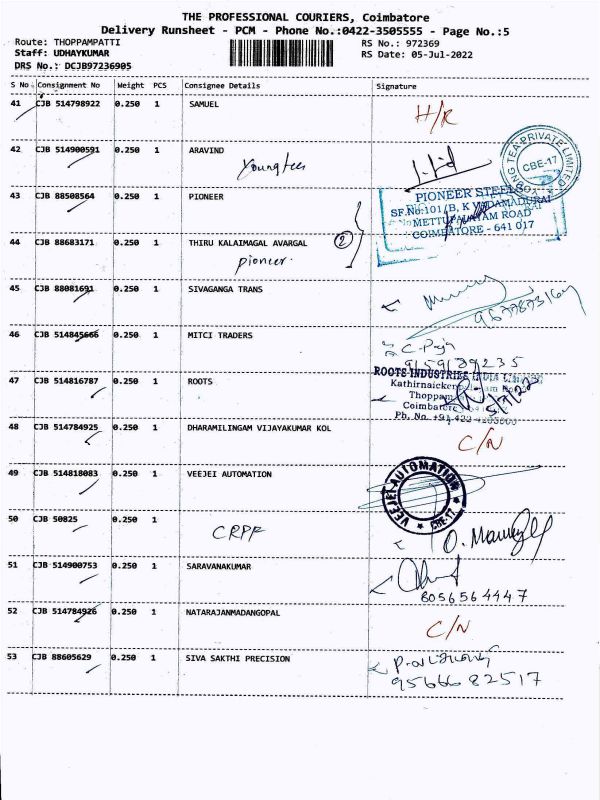 THE PROFESSIONAL COURIERS, Coimbatore
Delivery Runsheet - PCM - Phone No.:0422-3505555 - Page No.:5
Route: THOPPAMPATTI RS No.: 972369
Staff: UDHAYKUMAR RS Date: 05-Jul-2022
DRS No.: DCJB97236905
S No Consignment No Weight PCS Consignee Details Signature
41 CJB 514798922 0.250 1 SAMUEL H/R
42 CJB 514900591 0.250 1 ARAVIND
TEA PRIVATE LIMITED
CBE-17
43 CJB 88508564 0.250 1 PIONEER
PIONEER STEELS
SF.No:101/B, K VADAMADURAI
METTUPALAYAM ROAD
COIMBATORE - 641 017
44 CJB 88683171 0.250 1 THIRU KALAIMAGAL AVARGAL 2
pioneer.
45 CJB 88081691 0.250 1 SIVAGANGA TRANS
46 CJB 514845666 0.250 1 MITCI TRADERS
47 CJB 514816787 0.250 1 ROOTS
ROOTS INDUSTRIES INDIA
Kathirnaicken
Thoppam
Coimbatore
Ph. No. +91 422
5/7/22
48 CJB 514784925 0.250 1 DHARAMILINGAM VIJAYAKUMAR KOL C/N
49 CJB 514818083 0.250 1 VEEJEI AUTOMATION
VEEJEI AUTOMATION
CBE-17
50 CJB 50825 0.250 1
CRPF
51 CJB 514900753 0.250 1 SARAVANAKUMAR
8056564447
52 CJB 514784926 0.250 1 NATARAJANMADANGOPAL C/N
53 CJB 88605629 0.250 1 SIVA SAKTHI PRECISION
9566682517